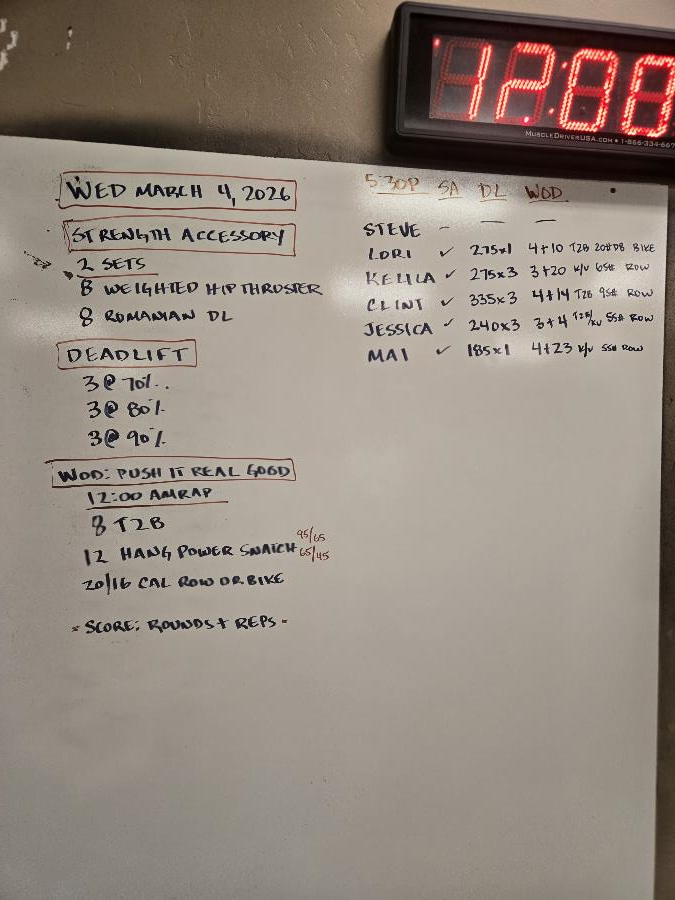 12:00
MUSCLEDRIVERUSA.COM • 1-866-334-667
WED MARCH 4, 2026
STRENGTH ACCESSORY
2 SETS
8 WEIGHTED HIP THRUSTER
8 ROMANIAN DL
DEADLIFT
3@70%.
3@80%
3@90%
WOD: PUSH IT REAL GOOD
12:00 AMRAP
8 T2B
12 HANG POWER SNATCH 95/65
65/45
20/16 CAL ROW OR BIKE
* SCORE: ROUNDS + REPS -
5:30P SA DL WOD
STEVE - — —
LORI ✓ 275x1 4+10 T2B 20#DB BIKE
KEULA ✓ 275x3 3+20 K/V 65# ROW
CLINT ✓ 335x3 4+14 T2B 95# ROW
JESSICA ✓ 240x3 3+4 T2B/KV 55# ROW
MAI ✓ 185x1 4+23 K/V 55# ROW